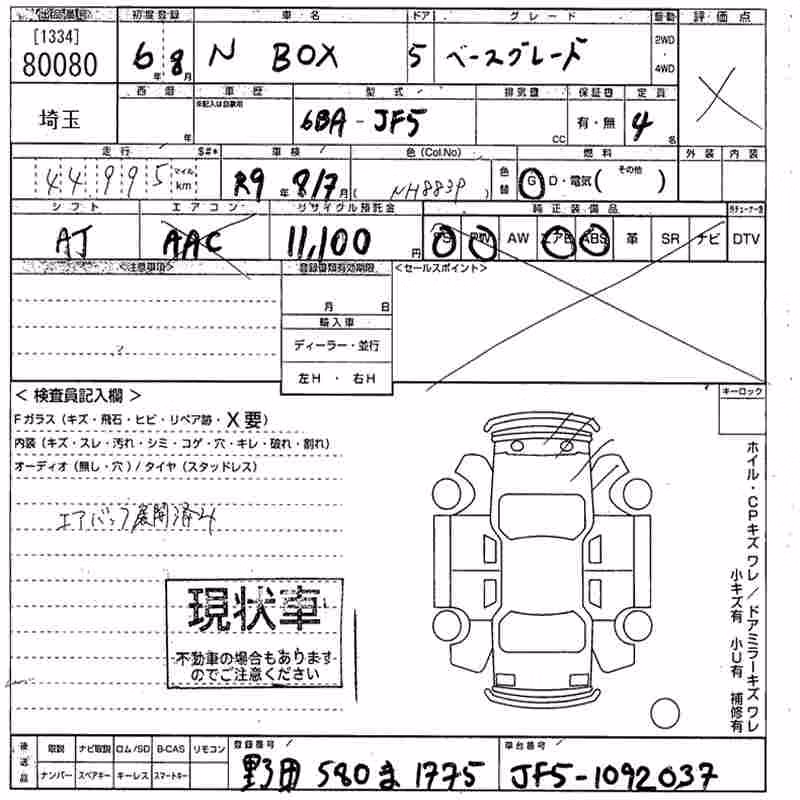 出品番号 初度登録 車名 ドア グレード 駆動 評価点
[1334] 2WD
80080 6年 8月 N BOX 5 ベースグレード ・
4WD
西暦 車歴 型式 排気量 保証書 定員
※記入は自家用
埼玉 年 6BA-JF5 cc 有・無 4名
走行 S#* 車検 色(Col.No) 燃料 外装 内装
44995 マイル km R9年 8/7月 (NH883P) 色替 G D・電気( その他 )
シフト エアコン リサイクル預託金 純正装備品
AT AAC 11,100円 PS PW AW エアB ABS 革 SR ナビ DTV
<注意事項> 登録書類有効期限 <セールスポイント>
月 日
輸入車
ディーラー・並行
左H ・ 右H
< 検査員記入欄 > キーロック
Fガラス(キズ・飛石・ヒビ・リペア跡・X要)
内装(キズ・スレ・汚れ・シミ・コゲ・穴・キレ・破れ・割れ)
オーディオ(無し・穴)/タイヤ(スタッドレス)
エアバック展開済み
ホイル・CPキズ ワレ/ドアミラーキズ ワレ
小キズ有 小U有 補修有
現状車
不動車の場合もあります
のでご注意ください
後送品 取説 ナビ取説 ロム/SD B-CAS リモコン 登録番号 車台番号
ナンバー スペアキー キーレス スマートキー 野田 580 ま 1775 JF5-1092037